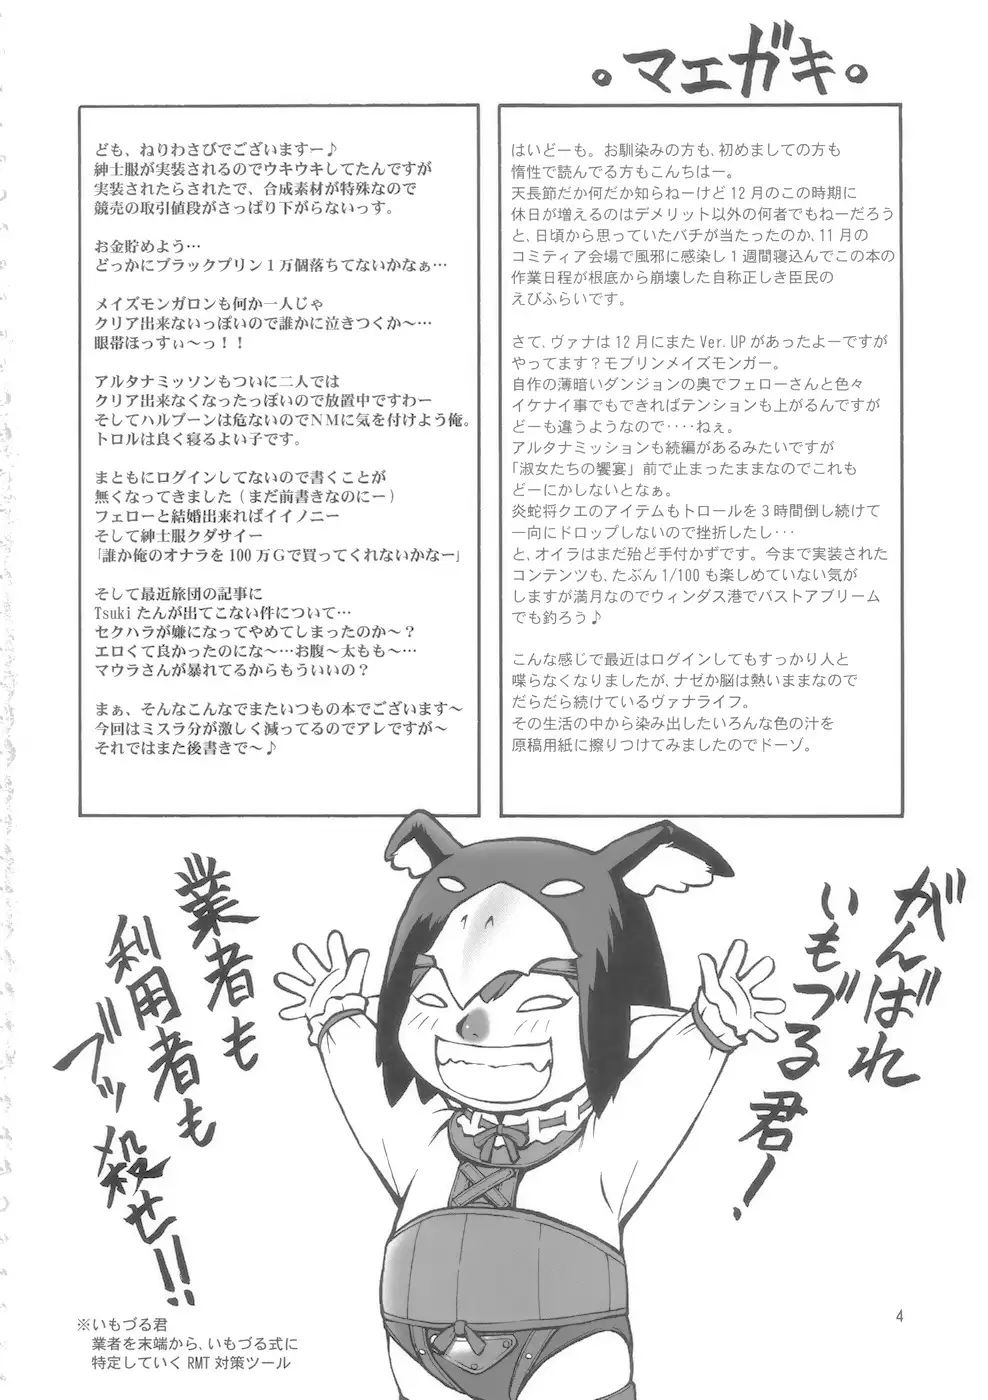 。マエガキ。
はいどーも。お馴染みの方も、初めましての方も
惰性で読んでる方もこんちはー。
天長節だか何だか知らねーけど12月のこの時期に
休日が増えるのはデメリット以外の何者でもねーだろう
と、日頃から思っていたバチが当たったのか、11月の
コミティア会場で風邪に感染し1週間寝込んでこの本の
作業日程が根底から崩壊した自称正しき臣民の
えびふらいです。
さて、ヴァナは12月にまたVer.UPがあったよーですが
やってます？モブリンメイズモンガー。
自作の薄暗いダンジョンの奥でフェローさんと色々
イケナイ事でもできればテンションも上がるんですが
どーも違うようなので‥‥ねぇ。
アルタナミッションも続編があるみたいですが
「淑女たちの饗宴」前で止まったままなのでこれも
どーにかしないとなぁ。
炎蛇将クエのアイテムもトロールを3時間倒し続けて
一向にドロップしないので挫折したし‥・
と、オイラはまだ殆ど手付かずです。今まで実装された
コンテンツも、たぶん1/100も楽しめていない気が
しますが満月なのでウィンダス港でバストアブリーム
でも釣ろう♪
こんな感じで最近はログインしてもすっかり人と
喋らなくなりましたが、ナゼか脳は熱いままなので
だらだら続けているヴァナライフ。
その生活の中から染み出したいろんな色の汁を
原稿用紙に擦りつけてみましたのでドーゾ。
ども、ねりわさびでございますー♪
紳士服が実装されるのでウキウキしてたんですが
実装されたらされたで、合成素材が特殊なので
競売の取引値段がさっぱり下がらないっす。
お金貯めよう…
どっかにブラックプリン1万個落ちてないかなぁ…
メイズモンガロンも何か一人じゃ
クリア出来ないっぽいので誰かに泣きつくか～…
眼帯ほっすぃ～っ！！
アルタナミッソンもついに二人では
クリア出来なくなったっぽいので放置中ですわー
そしてハルブーンは危ないのでNMに気を付けよう俺。
トロルは良く寝るよい子です。
まともにログインしてないので書くことが
無くなってきました（まだ前書きなのにー）
フェローと結婚出来ればイイノニー
そして紳士服クダサイー
「誰か俺のオナラを100万Gで買ってくれないかなー」
そして最近旅団の記事に
Tsukiたんが出てこない件について…
セクハラが嫌になってやめてしまったのか～？
エロくて良かったのにな～…お腹～太もも～…
マウラさんが暴れてるからもういいの？
まぁ、そんなこんなでまたいつもの本でございます～
今回はミスラ分が激しく減ってるのでアレですが～
それではまた後書きで～♪
がんばれ
いもづる君！
業者も
利用者も
ブッ殺せ!!
※いもづる君
業者を末端から、いもづる式に
特定していくRMT対策ツール
4